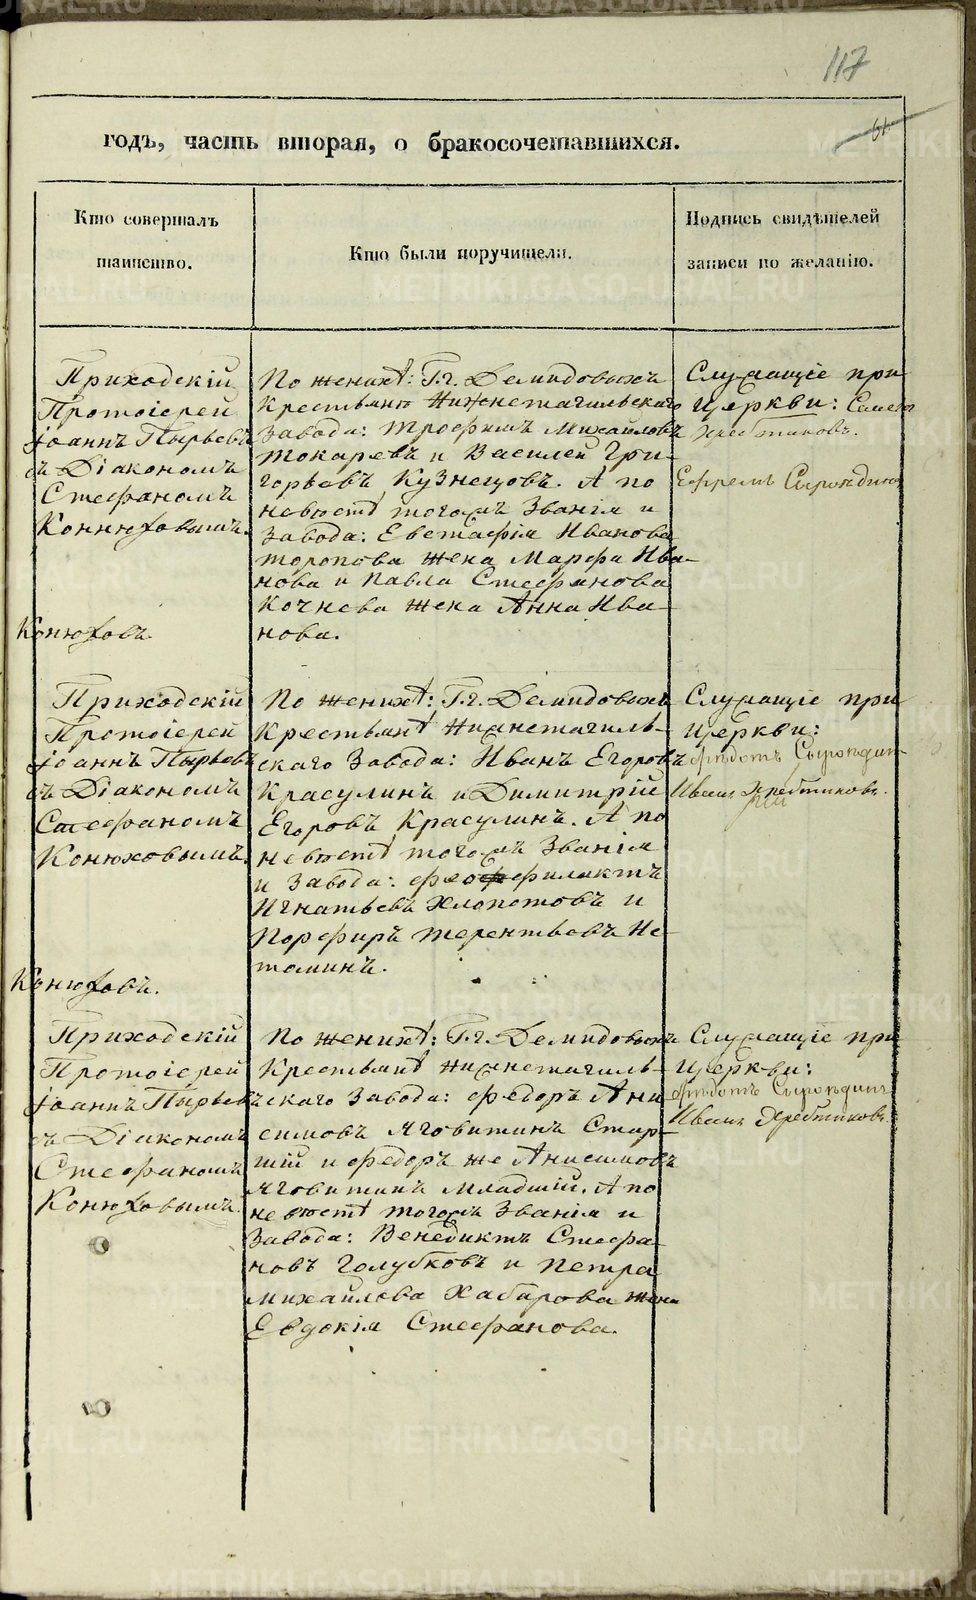 117
61
годъ, часть вторая, о бракосочетавшихся.
Кто совершалъ
таинство.
Кто были поручители.
Подпись свидѣтелей
записи по желанію.
Приходскій
Протоіерей
Іоаннъ Пырьевъ
съ Діакономъ
Стефаномъ
Коннюховымъ.
Конюховъ.
По женихѣ: Г.г. Демидовыхъ
Крестьяне Нижнетагильскаго
Завода: Трофимъ Михайловъ
Токаревъ и Василей Гри-
горьевъ Кузнецовъ. А по
невѣстѣ тогожъ Званія и
Завода: Евстафія Иванова
Торопова жена Марфа Ива-
нова и Павла Стефанова
Кочнева жена Анна Ива-
нова.
Служащіе при
Церкви:
Хребтиковъ.
Ефремъ
Приходскій
Протоіерей
Іоаннъ Пырьевъ
съ Діакономъ
Стефаномъ
Конюховымъ.
Конюховъ.
По женихѣ: Г.г. Демидовыхъ
Крестьянѣ Нижнетагиль-
скаго Завода: Иванъ Егоровъ
Красулинъ и Димитрій
Егоровъ Красулинъ. А по
невѣстѣ тогожъ Званія
и Завода: Феофилактъ
Игнатьевъ Хлопотовъ и
Порфиръ Терентьевъ Не-
томинъ.
Служащіе при
Церкви:
Иванъ Хребтиковъ.
Приходскій
Протоіерей
Іоаннъ Пырьевъ
съ Діакономъ
Стефаномъ
Конюховымъ.
По женихѣ: Г.г. Демидовыхъ
Крестьянѣ Нижнетагиль-
скаго Завода: Федоръ Ани-
симовъ Яговитинъ Стар-
шій и Федоръ же Анисимовъ
Яговитинъ младшій. А по
невѣстѣ тогожъ Званія и
Завода: Венедиктъ Стефа-
новъ Голубковъ и Петра
Михайлова Хабарова жена
Евдокія Стефанова.
Служащіе при
Церкви:
Иванъ Хребтиковъ.
METRIKI.GASO-URAL.RU